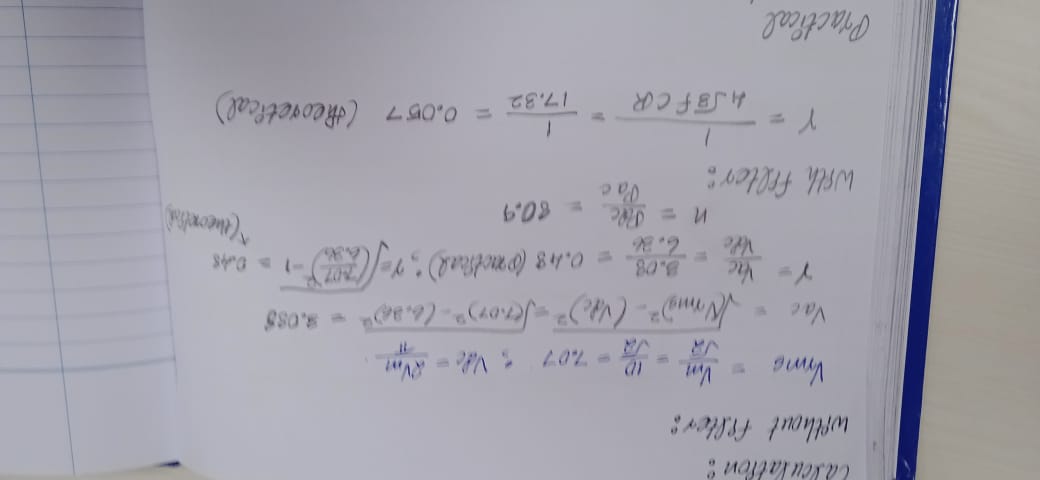 Calculation:
without filter:
Vrms = Vm/√2 = 10/√2 = 7.07 ; Vdc = 2Vm/π
Vac = √(Vrms)² - (Vdc)² = √(7.07)² - (6.36)² = 3.088
γ = Vac/Vdc = 3.08/6.36 = 0.48 (practical) ; γ = √(7.07/6.36)² - 1 = 0.48
(theoretical)
η = Pdc/Pac = 80.9
with filter:
γ = 1/4√3 f C R = 1/17.32 = 0.057 (theoretical)
Practical